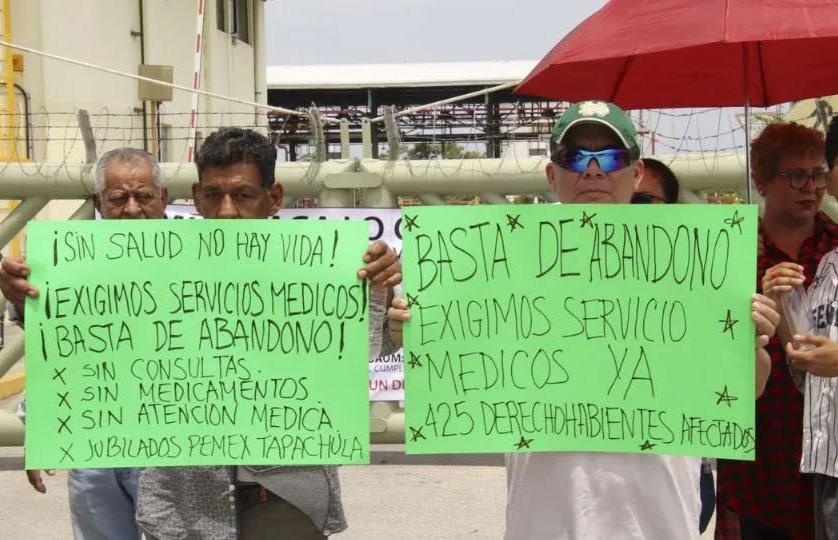 ¡SIN SALUD NO HAY VIDA!
¡EXIGIMOS SERVICIOS MEDICOS!
¡BASTA DE ABANDONO!
x SIN CONSULTAS.
x SIN MEDICAMENTOS.
x SIN ATENCION MEDICA
x JUBILADOS PEMEX TAPACHULA
BASTA DE ABANDONO
EXIGIMOS SERVICIO
MEDICOS YA
425 DERECHOHABIENTES AFECTADOS
UN